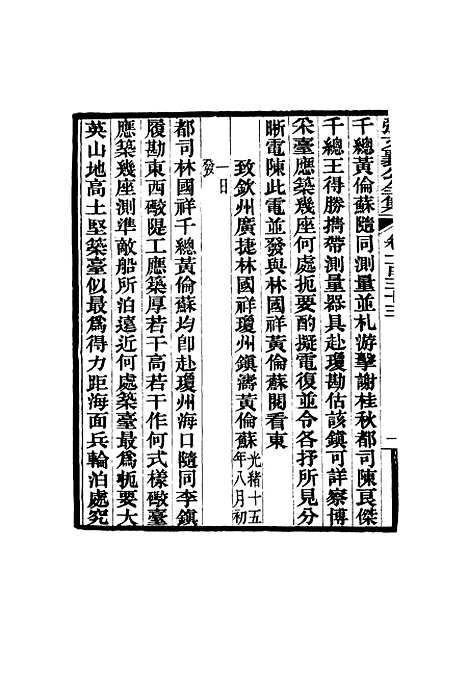 千總黃倫蘇隨同測量並札游擊謝桂秋都司陳良傑
千總王得勝攜帶測量器具赴瓊勘估該鎮可詳察博
采臺應築幾座何處扼要酌擬電復並令各抒所見分
晰電陳此電並發與林國祥黃倫蘇閱看東
致欽州廣捷林國祥瓊州鎮濤黃倫蘇光緒十五年八月初
一日發
都司林國祥千總黃倫蘇均卽赴瓊州海口隨同李鎮
履勘東西礮隄工應築厚若干高若干作何式樣礮臺
應築幾座測準敵船所泊遠近何處築臺最爲扼要大
英山地高土堅築臺似最爲得力距海面兵輪泊處究